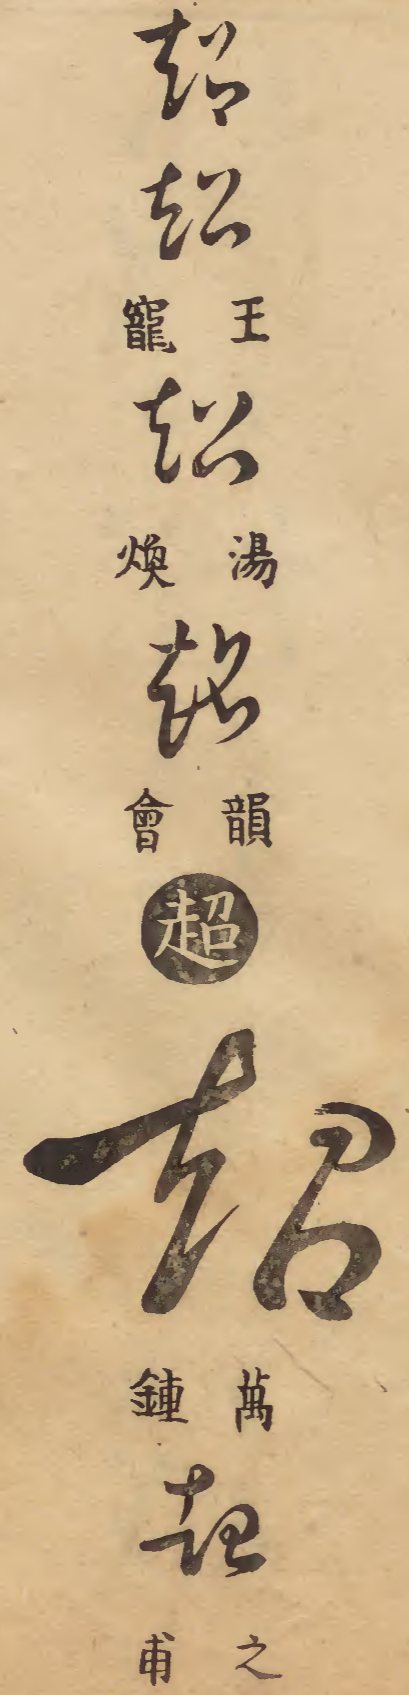 超
超
王寵
超
湯煥
超
韻會
超
超
萬鍾
超
之甫